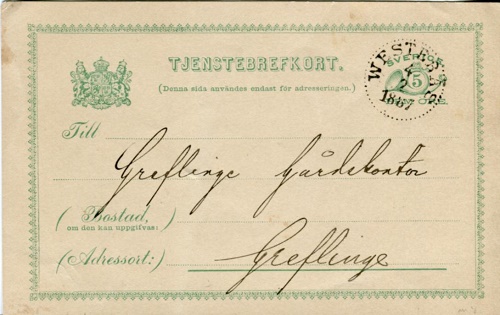 TJENSTEBREFKORT.
(Denna sida användes endast för adresseringen.)
SVERIGE
5
WESTERÅS
2
1887
Till
Greflinge Gårdskontor
(Bostad,
om den kan uppgifvas:)
(Adressort:)
Greflinge